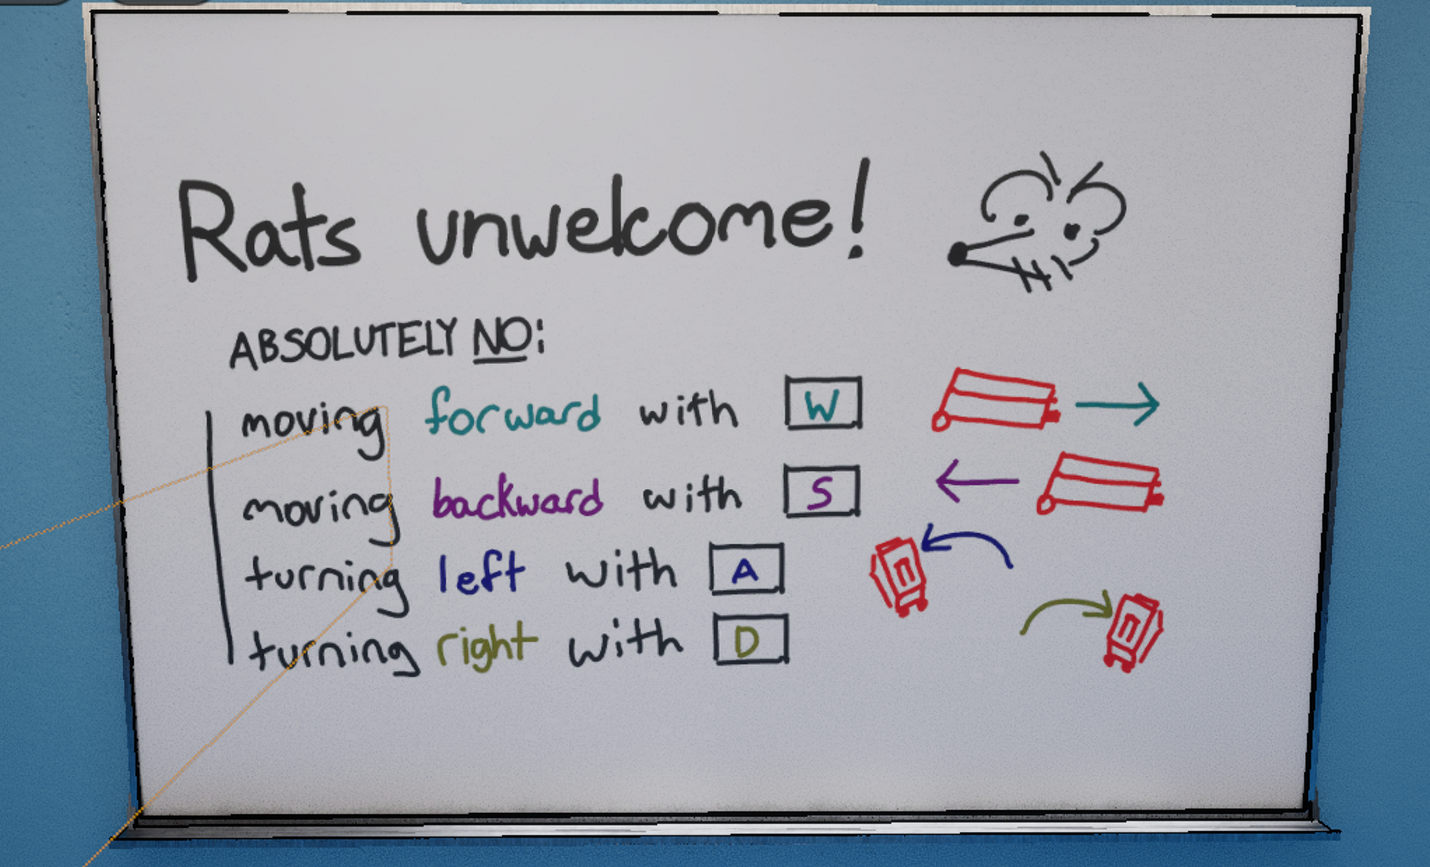 Rats unwelcome!
ABSOLUTELY NO:
moving forward with W
moving backward with S
turning left with A
turning right with D